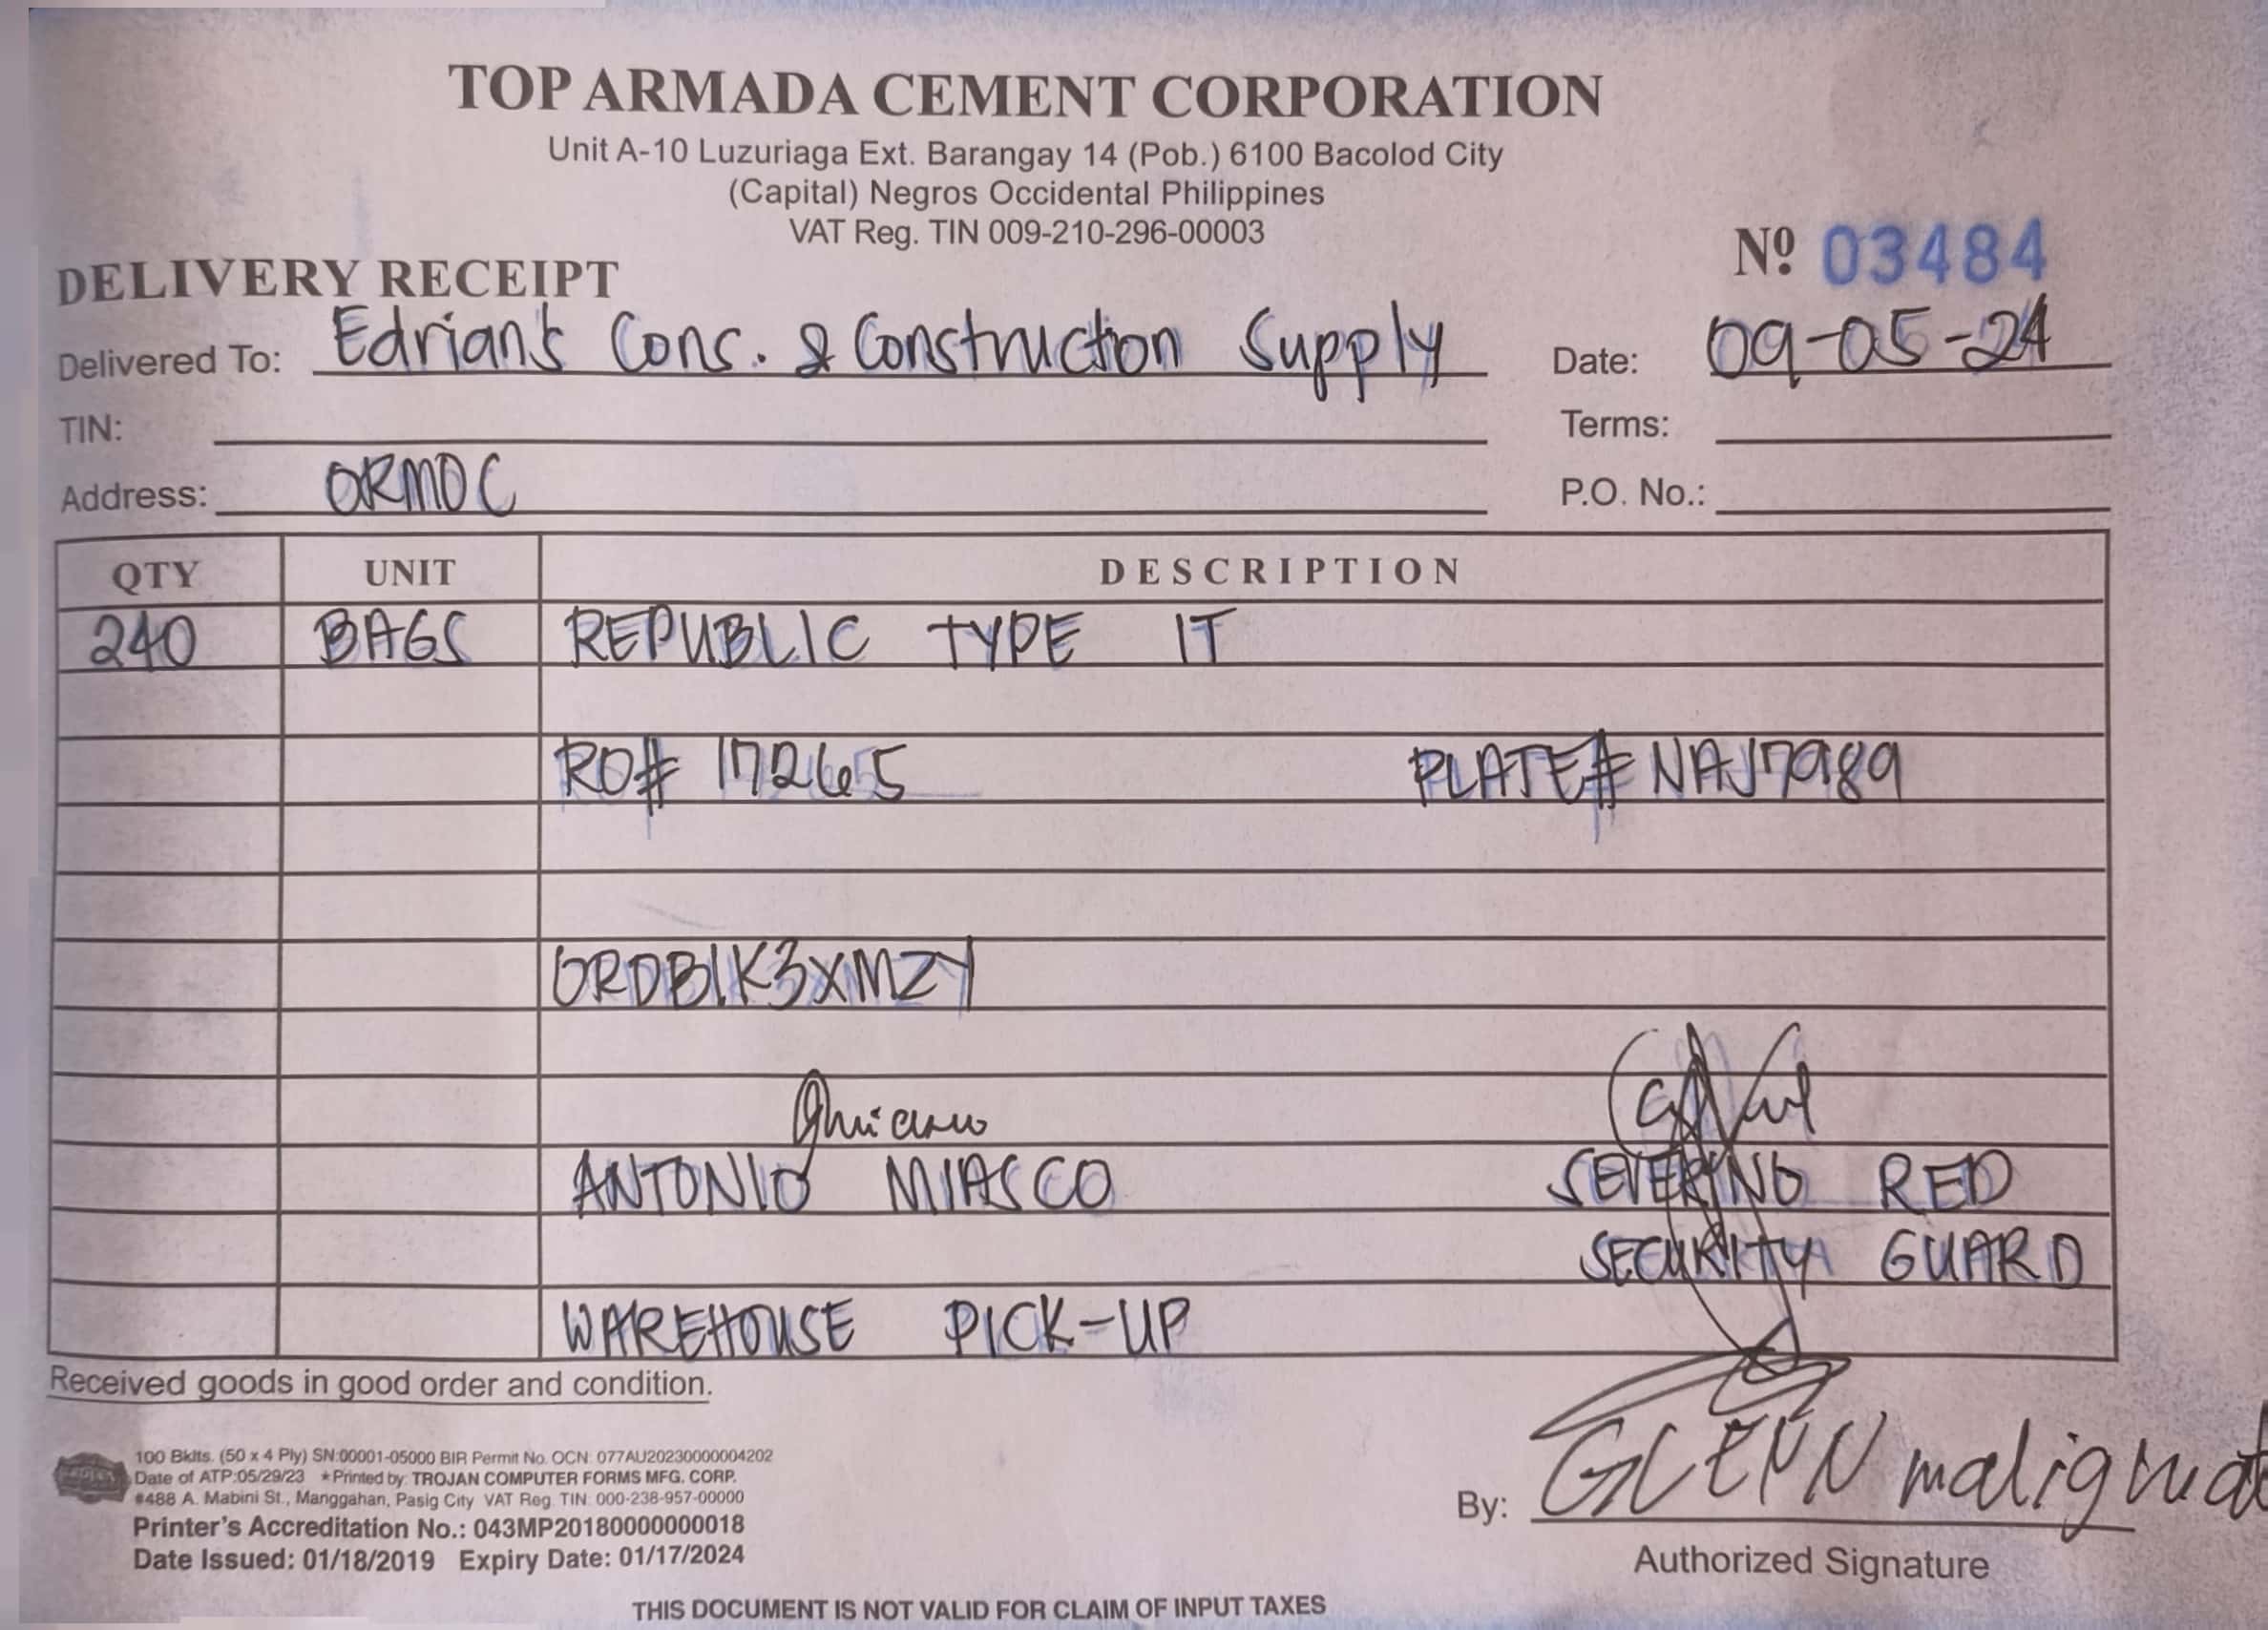 TOP ARMADA CEMENT CORPORATION
Unit A-10 Luzuriaga Ext. Barangay 14 (Pob.) 6100 Bacolod City
(Capital) Negros Occidental Philippines
VAT Reg. TIN 009-210-296-00003
Nº 03484
DELIVERY RECEIPT
Delivered To: Edrian's Cons. & Construction Supply Date: 09-05-24
TIN: Terms:
Address: ORMOC P.O. No.:
QTY UNIT DESCRIPTION
240 BAGS REPUBLIC TYPE 1T
RO# 17265 PLATE# NAJ7989
ORDB1K3XMZY
ANTONIO MIASCO SEVERINO RED
SECURITY GUARD
WAREHOUSE PICK-UP
Received goods in good order and condition.
100 Bklts. (50 x 4 Ply) SN:00001-05000 BIR Permit No. OCN: 077AU20230000004202
Date of ATP:05/29/23 *Printed by: TROJAN COMPUTER FORMS MFG. CORP.
#488 A. Mabini St., Manggahan, Pasig City VAT Reg. TIN: 000-238-957-00000
Printer's Accreditation No.: 043MP20180000000018
Date Issued: 01/18/2019 Expiry Date: 01/17/2024
By: GLENN
Authorized Signature
THIS DOCUMENT IS NOT VALID FOR CLAIM OF INPUT TAXES